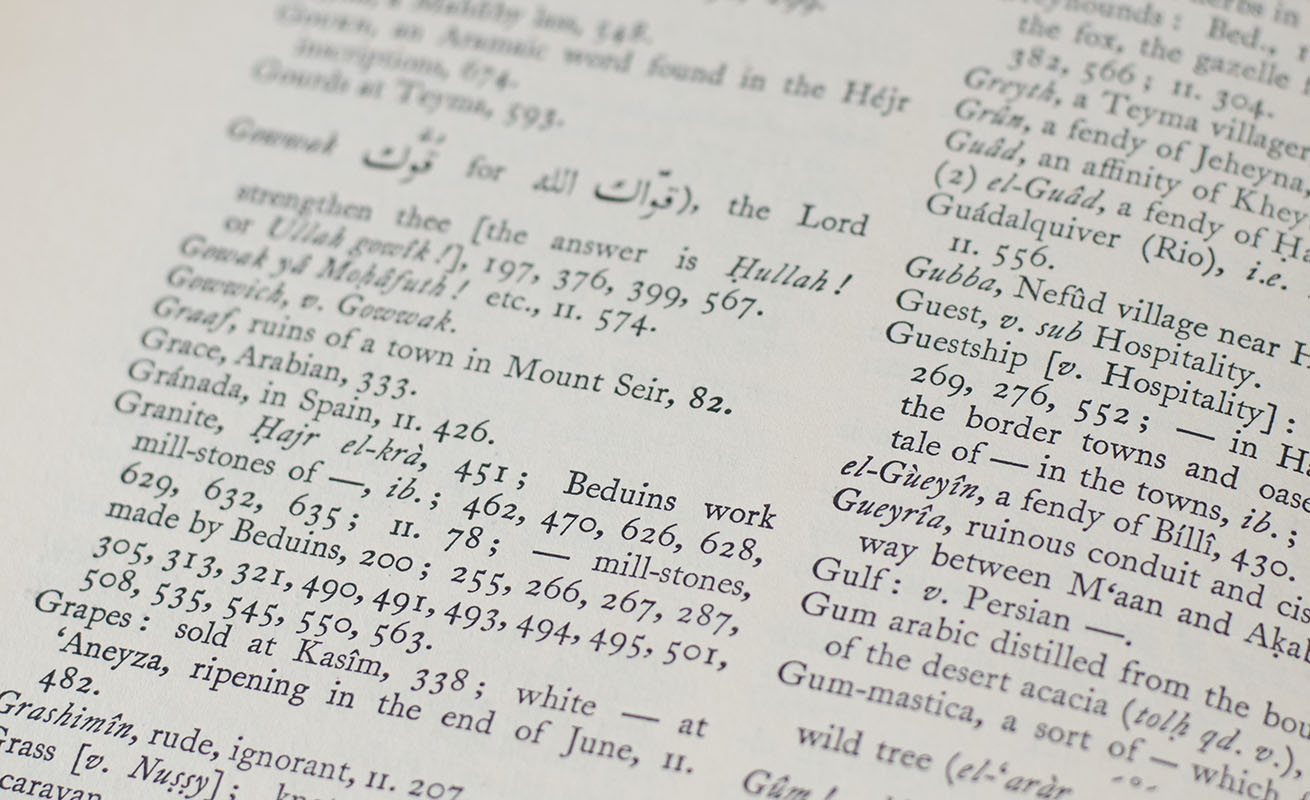 Gowen, an Aramaic word found in the Héjr
inscriptions, 674.
Gourds at Teyma, 593.
Gowwak قوك for قوّاك الله), the Lord
strengthen thee [the answer is Ḥullah!
or Ullah gowîk!], 197, 376, 399, 567.
Gowak yâ Moḥâfuth! etc., II. 574.
Gowwich, v. Gowwak.
Graaf, ruins of a town in Mount Seir, 82.
Grace, Arabian, 333.
Gránada, in Spain, II. 426.
Granite, Ḥajr el-krà, 451; Beduins work
mill-stones of —, ib.; 462, 470, 626, 628,
629, 632, 635; II. 78; — mill-stones,
made by Beduins, 200; 255, 266, 267, 287,
305, 313, 321, 490, 491, 493, 494, 495, 501,
508, 535, 545, 550, 563.
Grapes: sold at Kasîm, 338; white — at
‘Aneyza, ripening in the end of June, II.
482.
Grashimîn, rude, ignorant, II. 207
Grass [v. Nuṣṣy];
caravan
Bed.,
the fox, the gazelle
382, 566; II. 304.
Greyth, a Teyma villager
Grûn, a fendy of Jeheyna,
Guâd, an affinity of Khey
(2) el-Guâd, a fendy of Ḥa
Guádalquiver (Rio), i.e.
II. 556.
Gubba, Nefûd village near H
Guest, v. sub Hospitality.
Guestship [v. Hospitality]:
269, 276, 552; — in Ha
the border towns and oase
tale of — in the towns, ib.;
el-Gùeyîn, a fendy of Bíllî, 430.
Gueyrîa, ruinous conduit and cis
way between M‘aan and Aḳab
Gulf: v. Persian —.
Gum arabic distilled from the bou
of the desert acacia (tolḥ qd. v.),
Gum-mastica, a sort of — which
wild tree (el-‘aràr
Gûm!